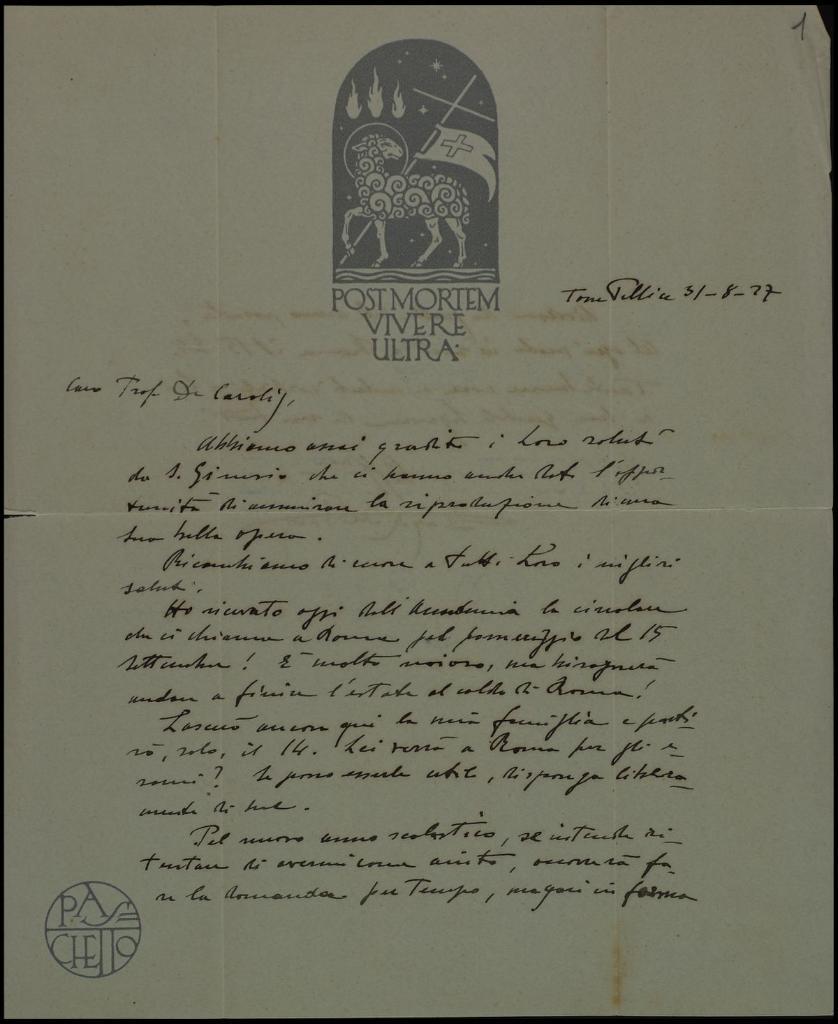 1
POST MORTEM
VIVERE
ULTRA
Torre Pellice 31-8-27
Caro Prof. De Carolis,
Abbiamo assai gradito i Loro saluti
da S. Ginesio che ci hanno anche dato l'oppor-
tunità di ammirare la riproduzione di una
sua bella opera.
Ricambiamo di cuore a tutti Loro i migliori
saluti.
Ho ricevuto oggi dall'Accademia la circolare
che ci chiama a Roma pel pomeriggio del 15
settembre! È molto noioso, ma bisognerà
andare a finire l'estate al caldo di Roma!
Lascerò ancora qui la mia famiglia e parti-
rò, solo, il 14. Lei verrà a Roma per gli e-
sami? Se posso esserle utile, disponga libera-
mente di me.
Pel nuovo anno scolastico, se intende ri-
tentare di avermi come aiuto, occorrerà fa-
re la domanda per tempo, magari in forma
PASCHETTO